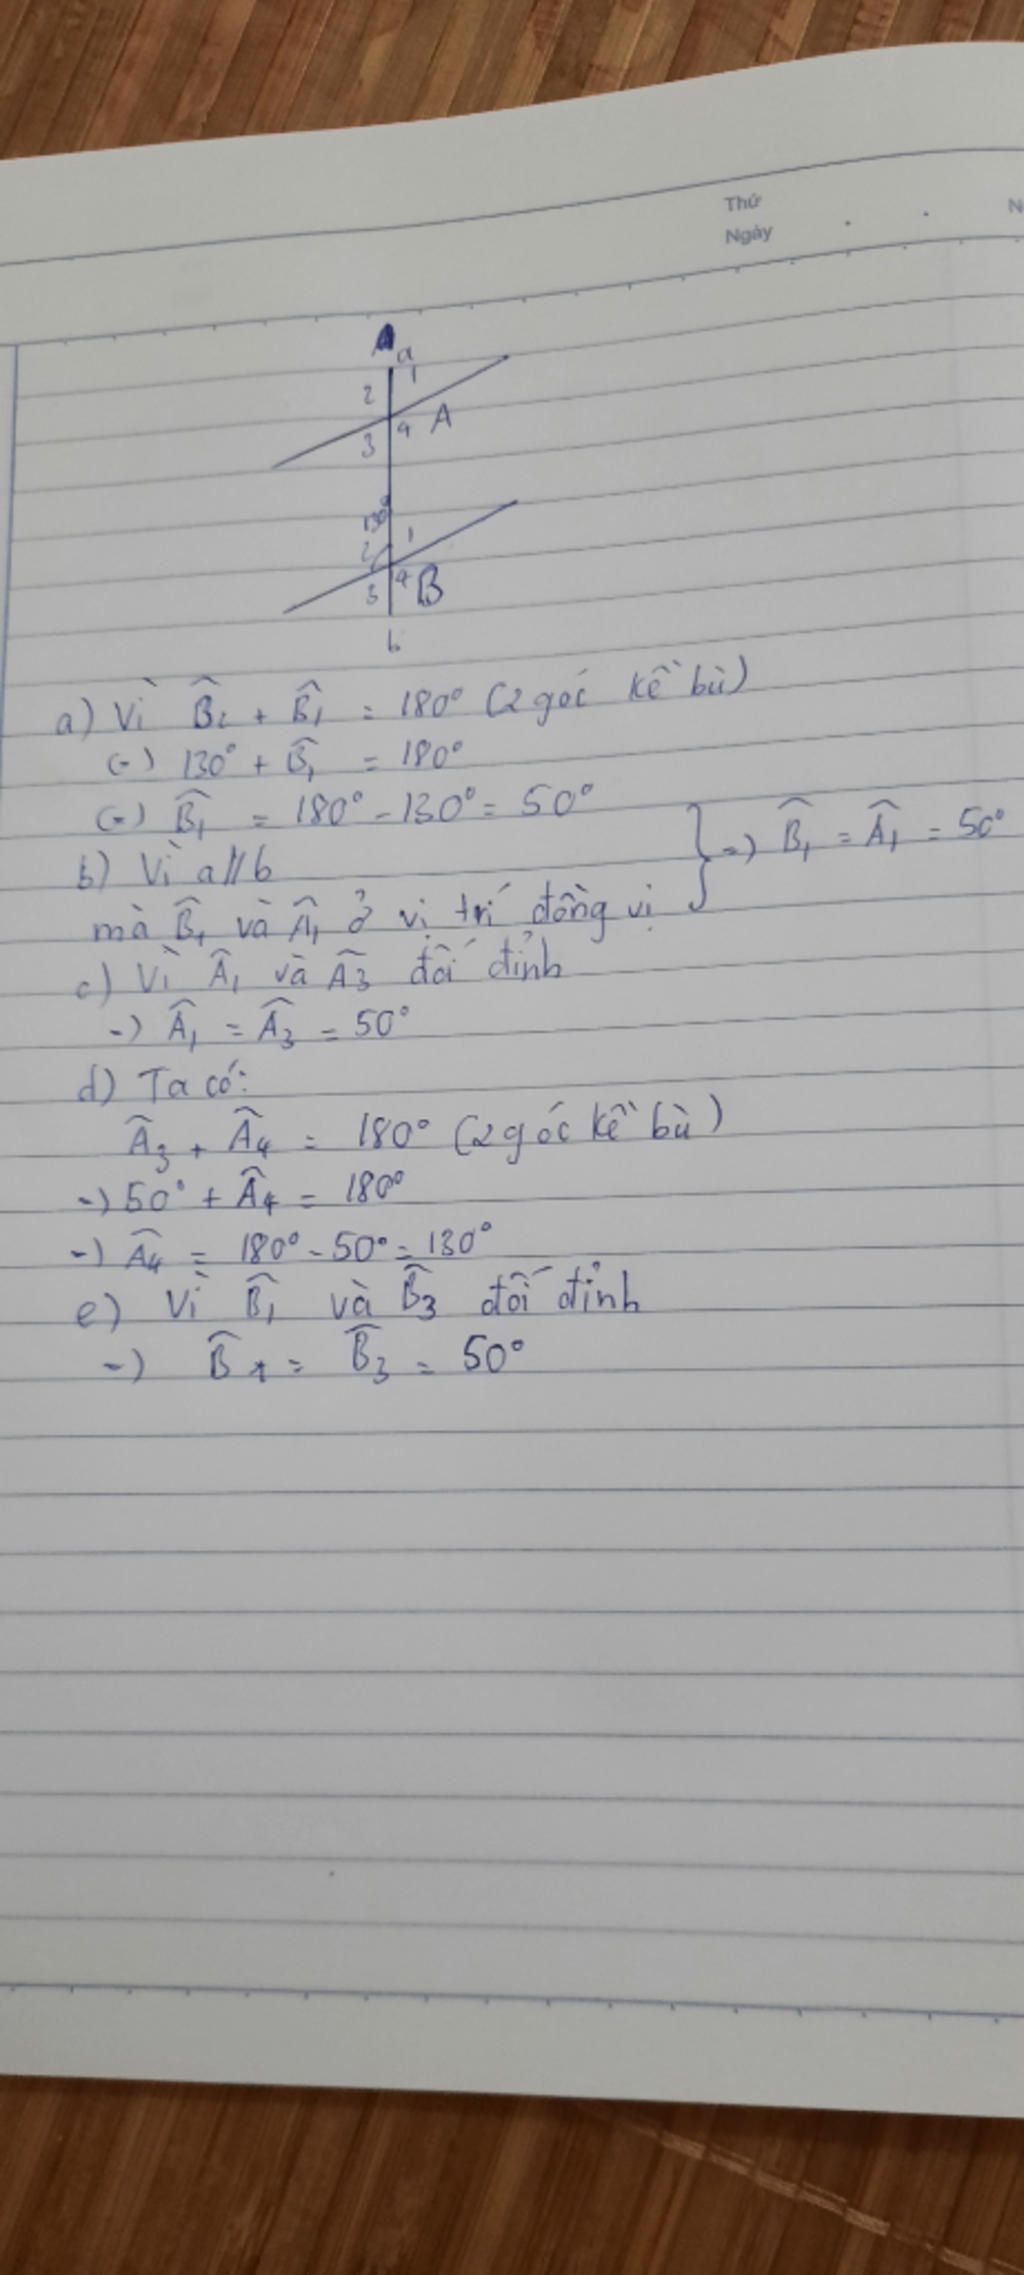 Thứ
N
Ngày
a
2 1
3 4 A
130°
2 1
3 4 B
b
a) Vì B̂₂ + B̂₁ = 180° (2 góc kề bù)
(=) 130° + B̂₁ = 180°
(=) B̂₁ = 180° - 130° = 50°
b) Vì a // b
mà B̂₁ và Â₁ ở vị trí đồng vị } =) B̂₁ = Â₁ = 50°
c) Vì Â₁ và Â₃ đối đỉnh
=) Â₁ = Â₃ = 50°
d) Ta có:
Â₃ + Â₄ = 180° (2 góc kề bù)
=) 50° + Â₄ = 180°
=) Â₄ = 180° - 50° = 130°
e) Vì B̂₁ và B̂₃ đối đỉnh
=) B̂₁ = B̂₃ = 50°